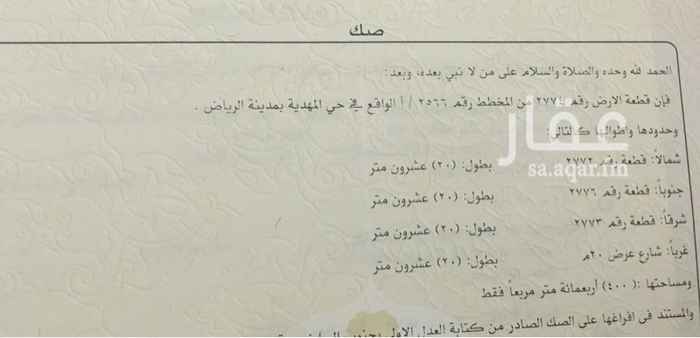 صك
الحمد لله وحده والصلاة والسلام على من لا نبي بعده، وبعد:
فإن قطعة الارض رقم من المخطط رقم ٢٥٦٦ / أ الواقع في حي المهدية بمدينة الرياض .
وحدودها واطوالها كالتالي:
شمالاً: قطعة رقم ٢٧٧٢ بطول: (٢٠) عشرون متر
جنوباً: قطعة رقم ٢٧٧٦ بطول: (٢٠) عشرون متر
شرقاً: قطعة رقم ٢٧٧٣ بطول: (٢٠) عشرون متر
غرباً: شارع عرض ٢٠م بطول: (٢٠) عشرون متر
ومساحتها :(٤٠٠) أربعمائة متر مربعاً فقط
والمستند في افراغها على الصك الصادر من كتابة العدل الاولى
عقار
sa.aqar.fm